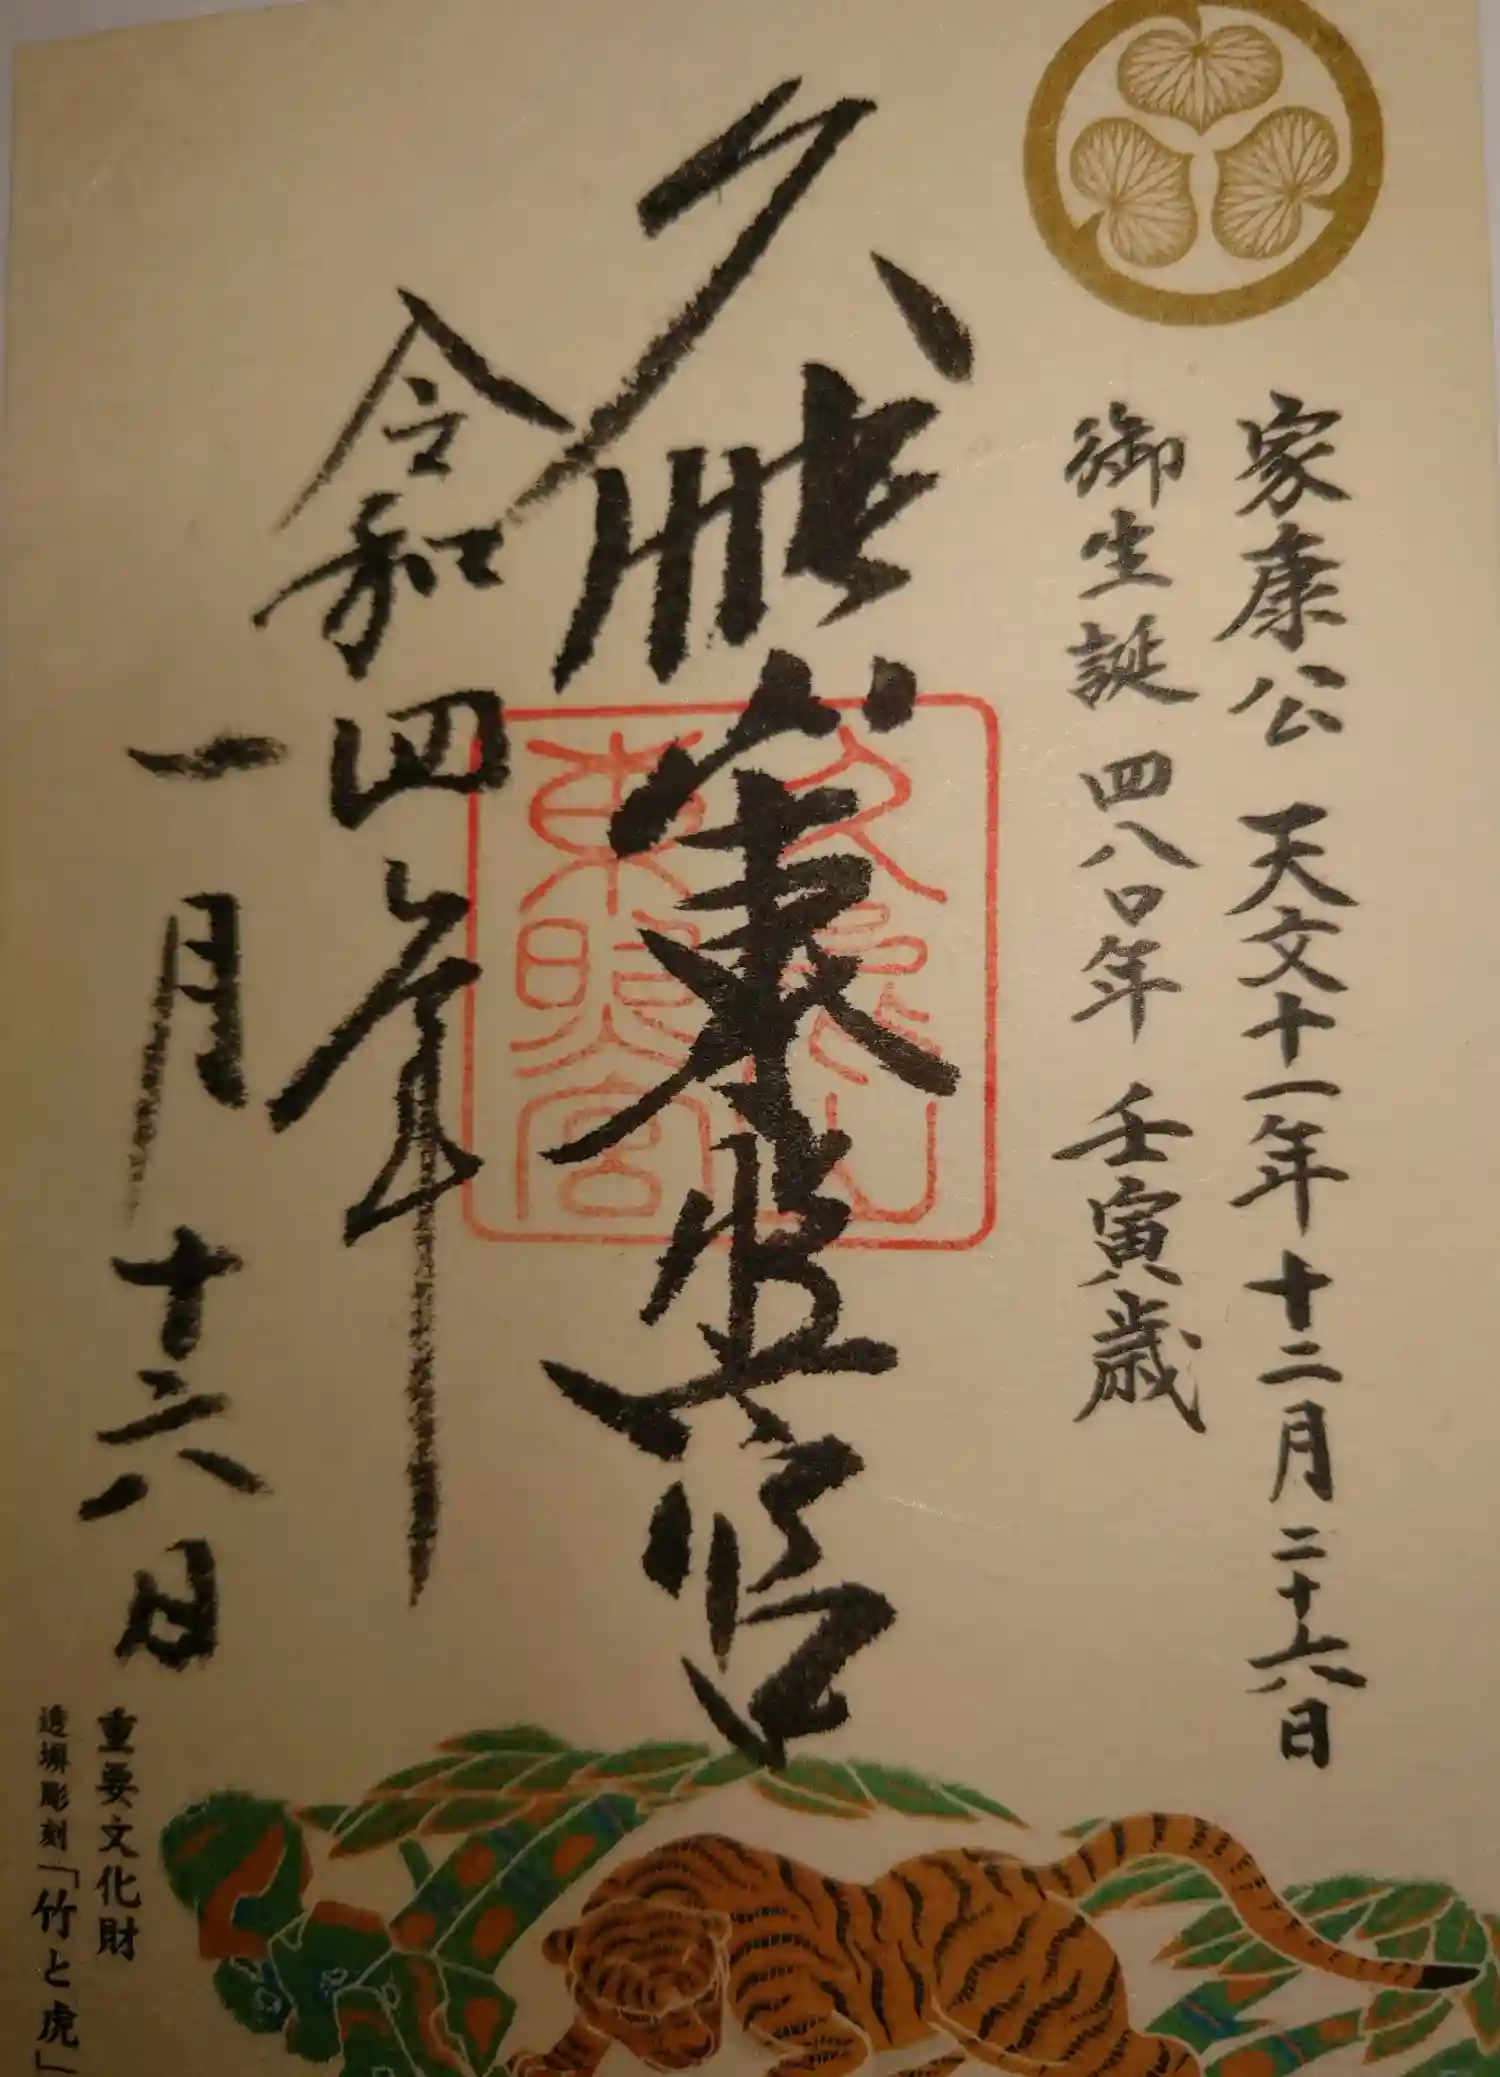 家康公 天文十一年十二月二十六日
御生誕 四八〇年 壬寅歳
久能山東照宮
久能山
東照宮
令和四年
一月十六日
重要文化財
透塀彫刻「竹と虎」